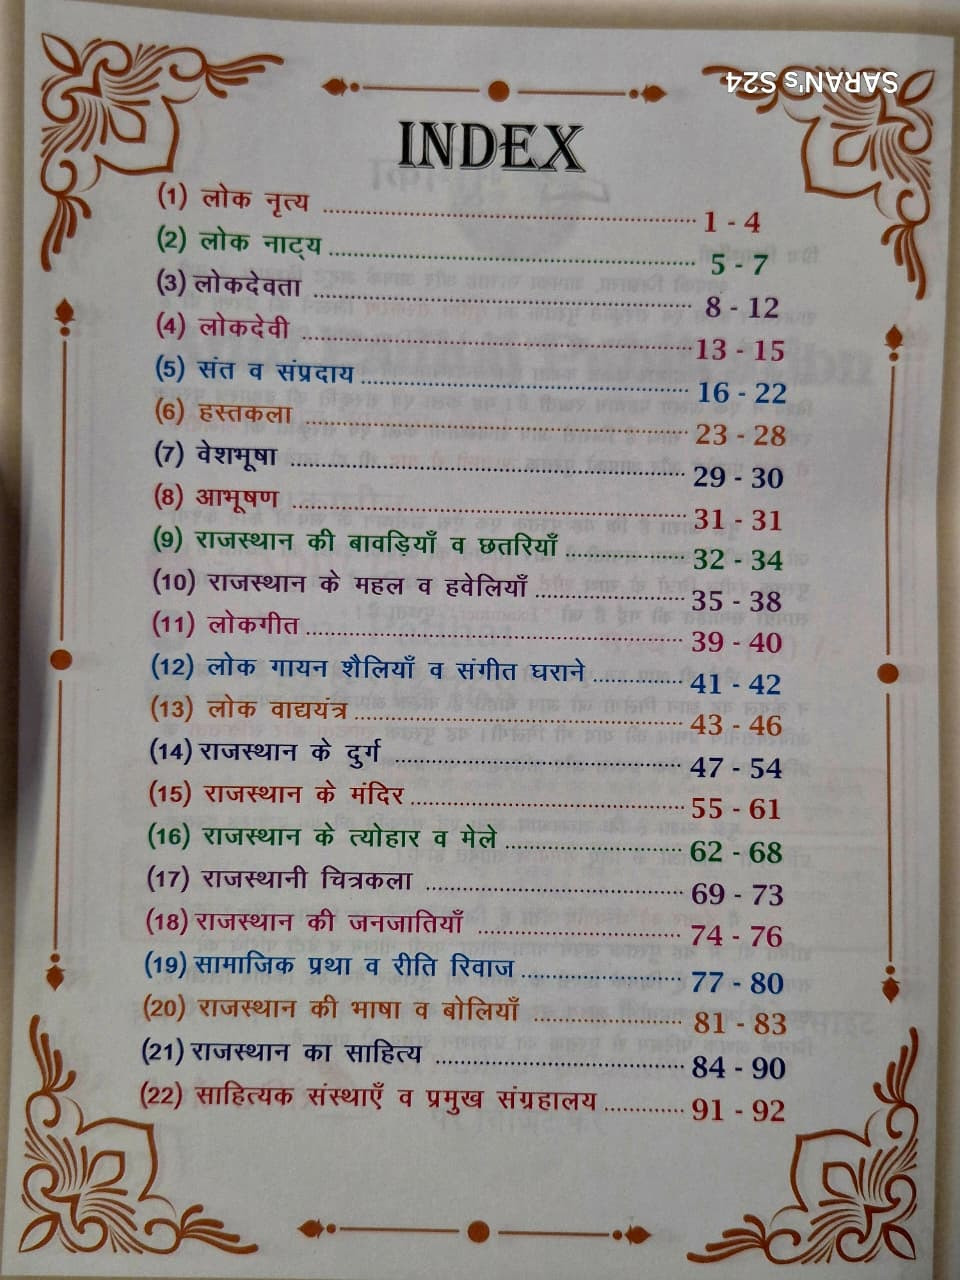 SARAN's S24
INDEX
(1) लोक नृत्य 1 - 4
(2) लोक नाट्य 5 - 7
(3) लोकदेवता 8 - 12
(4) लोकदेवी 13 - 15
(5) संत व संप्रदाय 16 - 22
(6) हस्तकला 23 - 28
(7) वेशभूषा 29 - 30
(8) आभूषण 31 - 31
(9) राजस्थान की बावड़ियाँ व छतरियाँ 32 - 34
(10) राजस्थान के महल व हवेलियाँ 35 - 38
(11) लोकगीत 39 - 40
(12) लोक गायन शैलियाँ व संगीत घराने 41 - 42
(13) लोक वाद्ययंत्र 43 - 46
(14) राजस्थान के दुर्ग 47 - 54
(15) राजस्थान के मंदिर 55 - 61
(16) राजस्थान के त्योहार व मेले 62 - 68
(17) राजस्थानी चित्रकला 69 - 73
(18) राजस्थान की जनजातियाँ 74 - 76
(19) सामाजिक प्रथा व रीति रिवाज 77 - 80
(20) राजस्थान की भाषा व बोलियाँ 81 - 83
(21) राजस्थान का साहित्य 84 - 90
(22) साहित्यक संस्थाएँ व प्रमुख संग्रहालय 91 - 92